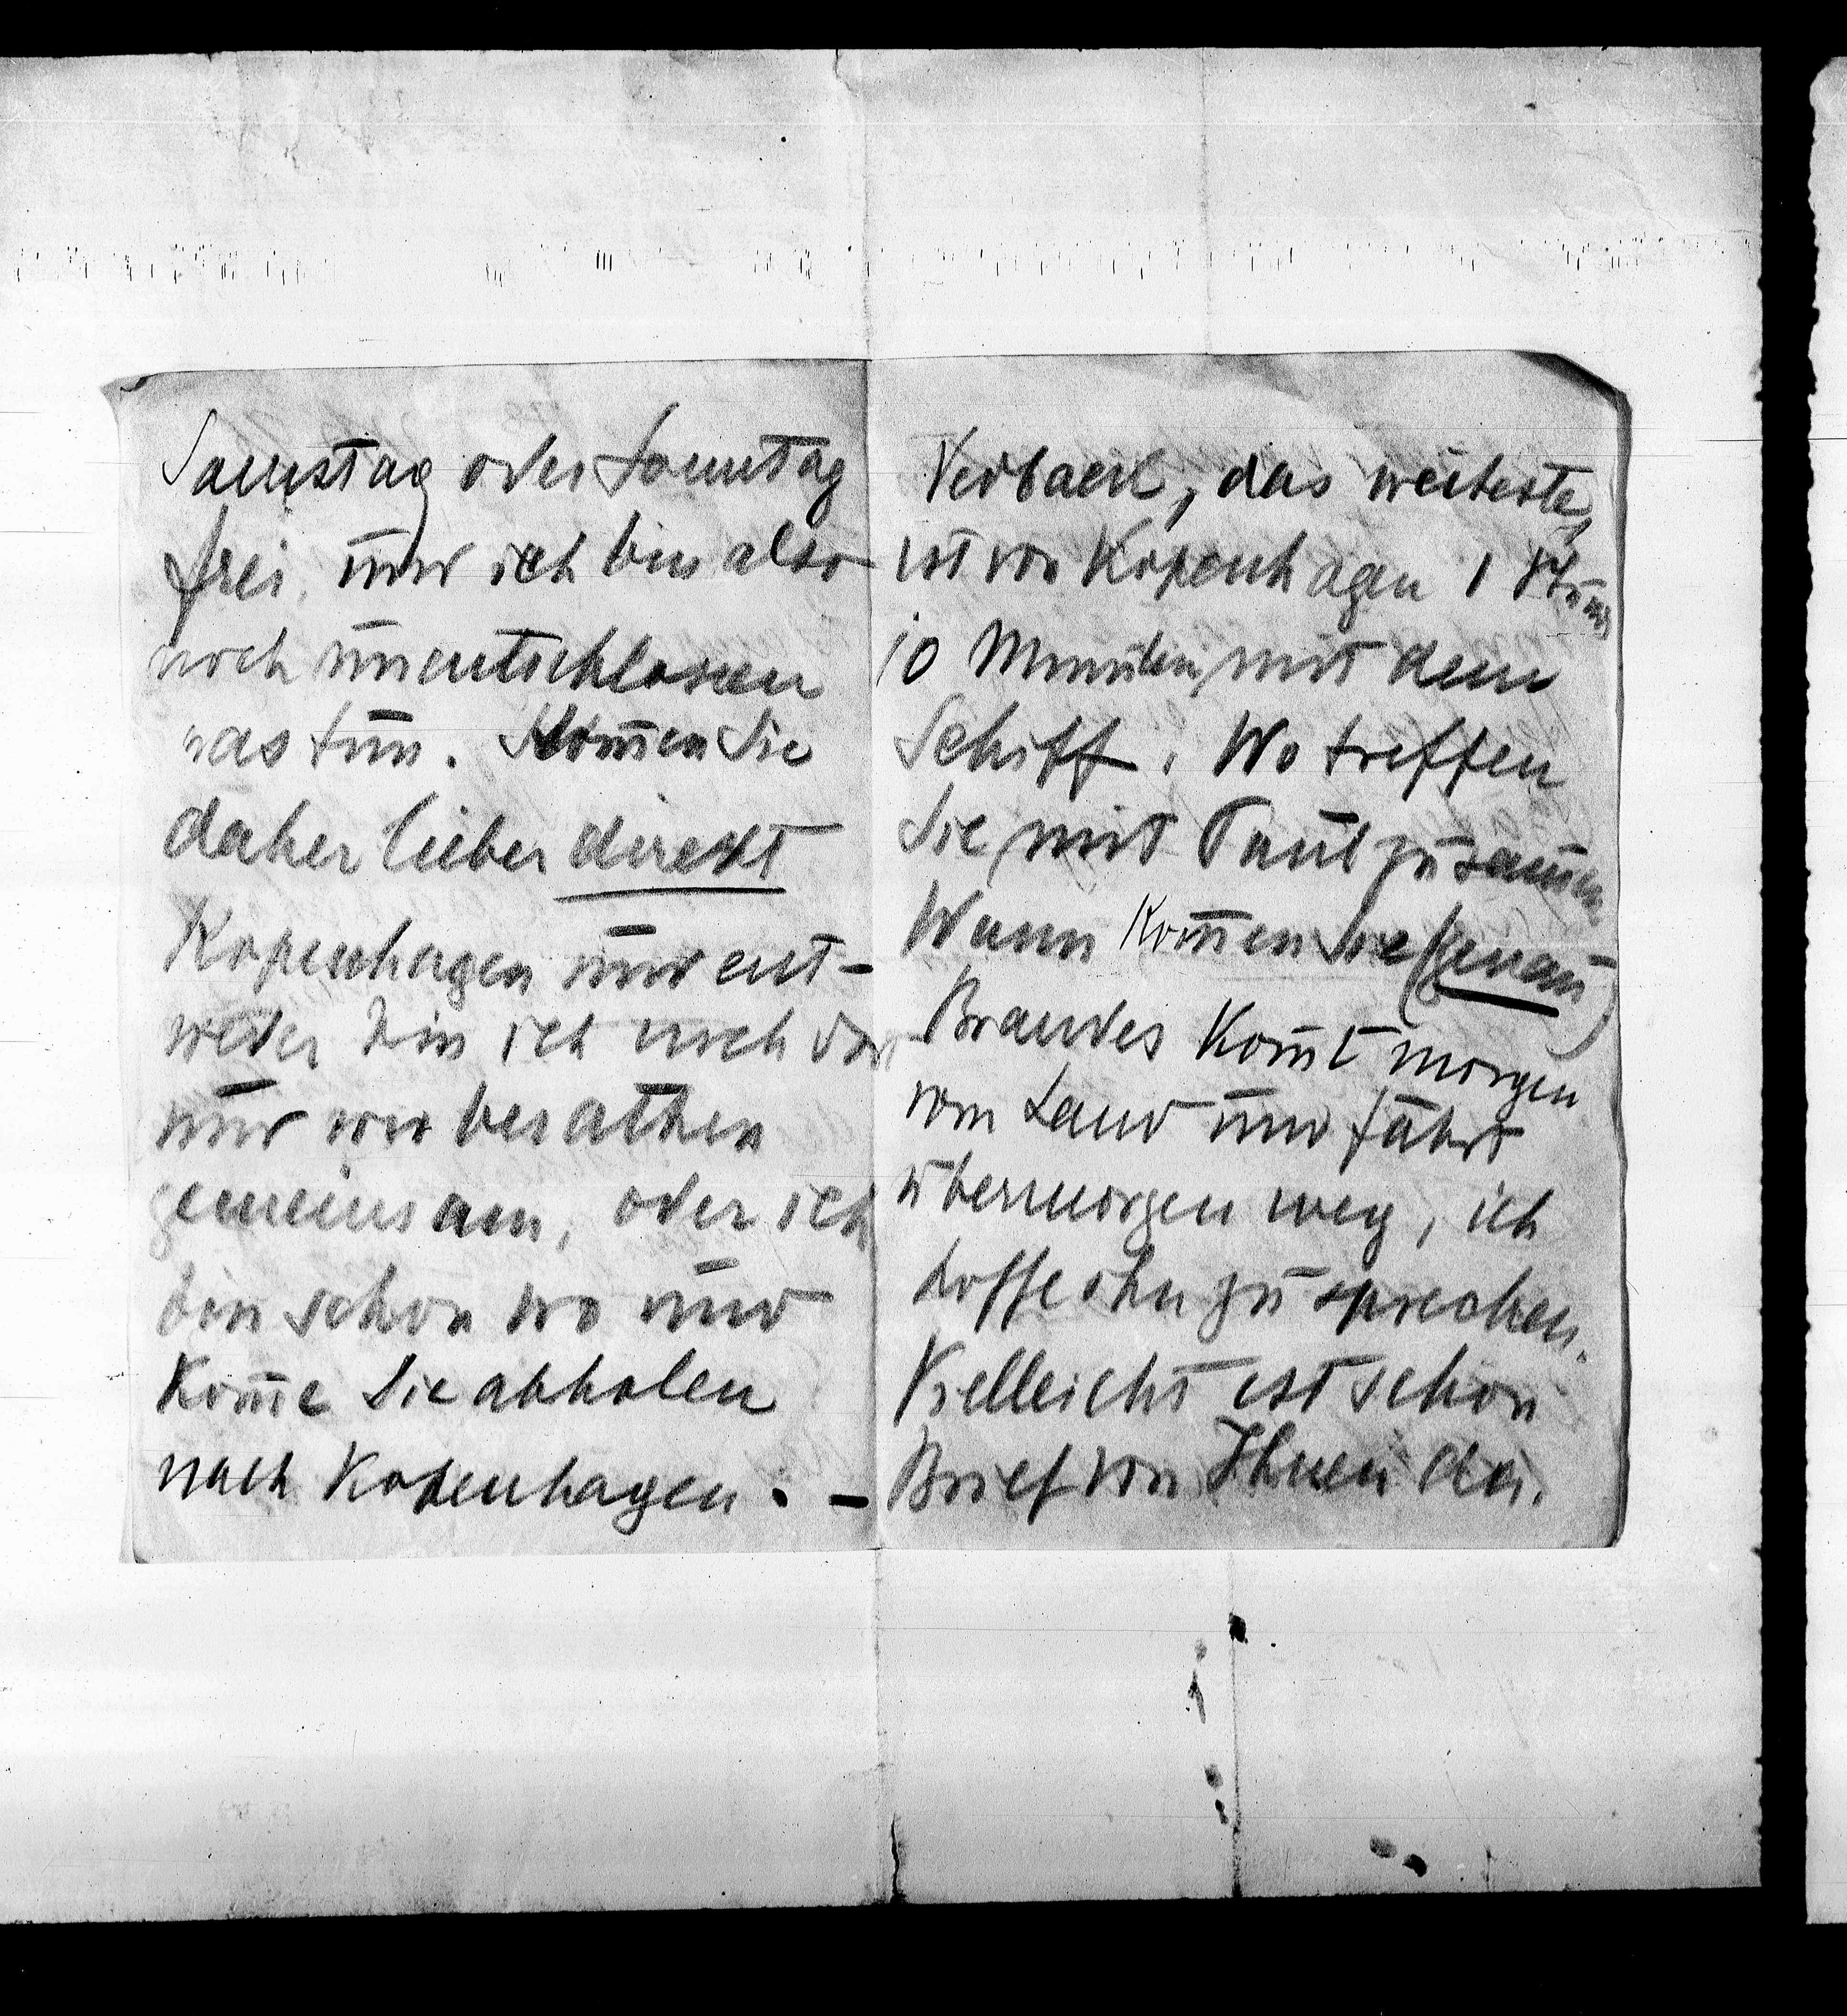 Samstag oder Sonntag
frei, und ich bin also
noch unentschlossen
was tun. Kom̅en Sie
daher lieber direkt
Kopenhagen und ent-
weder bin ich noch dort
und wir berathen
gemeinsam, oder ich
bin schon wo und
Kom̅e Sie abholen
nach Kopenhagen. –
Vedbaek, das weiteste,
ist von Kopenhagen 1 Stund
10 Minuten mit dem
Schiff. Wo treffen
Sie mit Paul zusam̅en.
Wann Kom̅en Sie (genau)
Brandes Kom̅t morgen
vom Land und fährt
übermorgen weg, ich
hoffe ihn zu sprechen.
Vielleicht ist schon
Brief von Ihnen da.